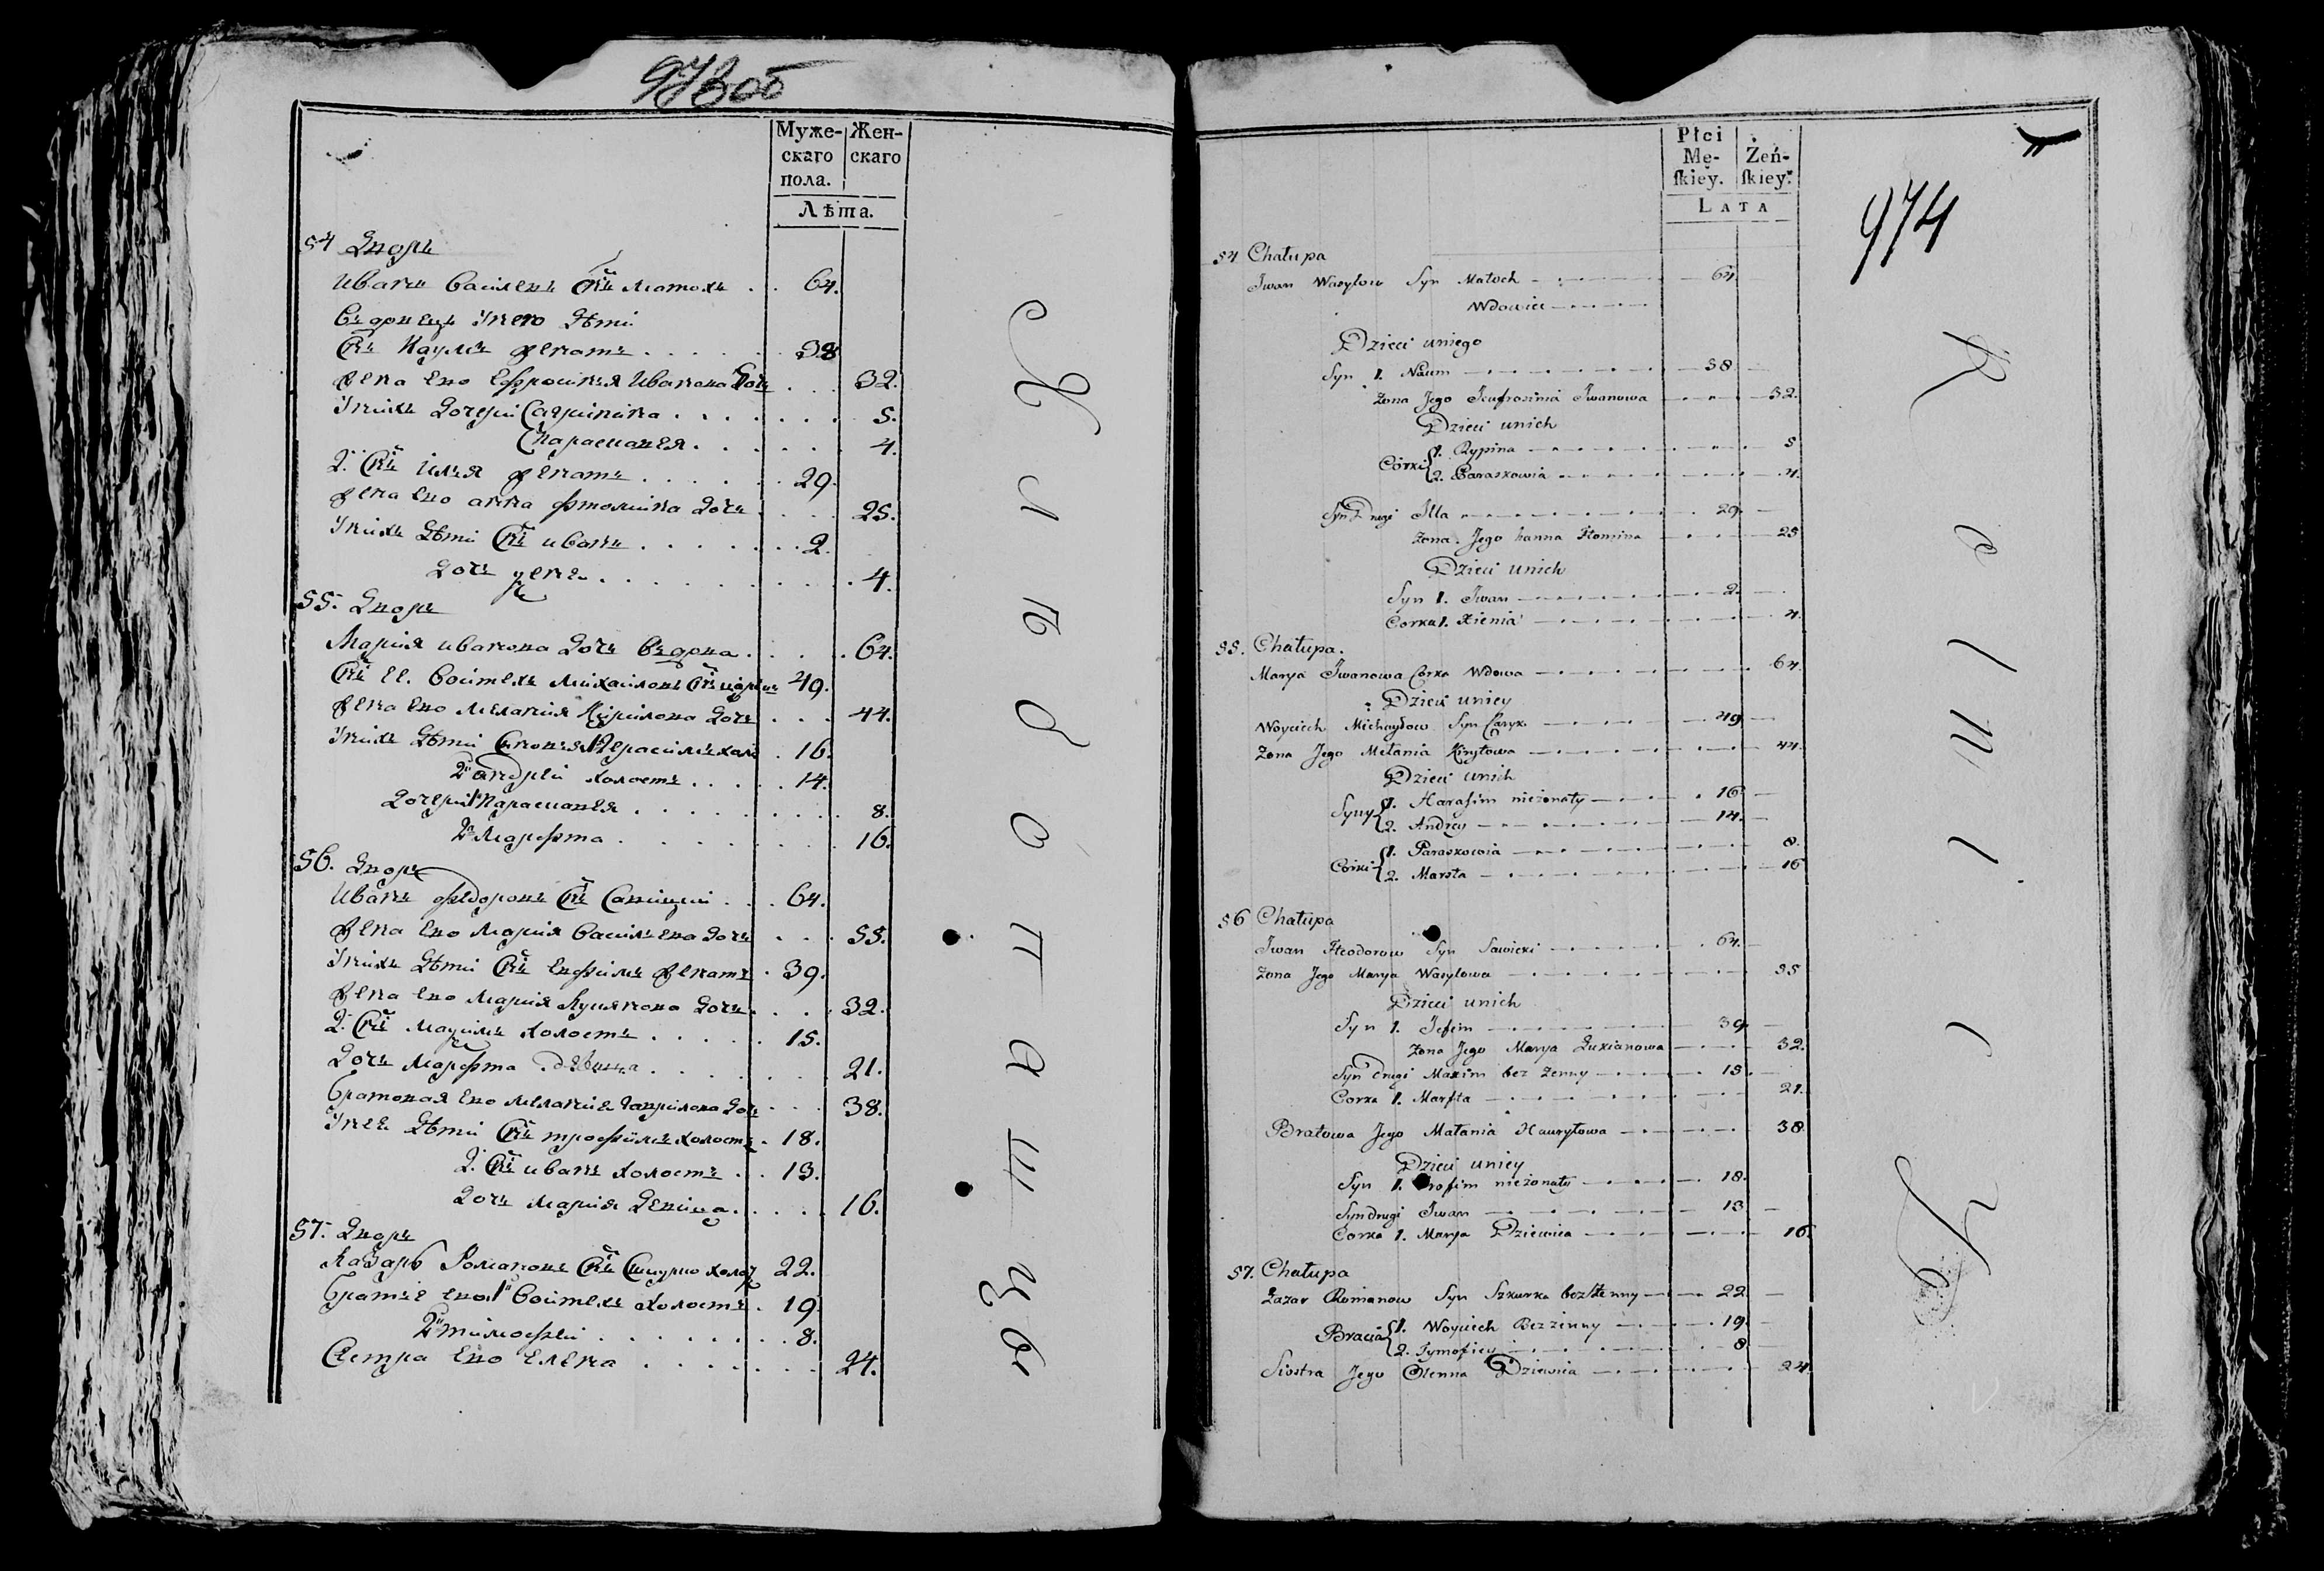 973 об
Муже-
скаго
пола.
Жен-
скаго
Лѣта.
54 Дворъ
Иванъ Василевъ Снъ Матохъ . . 64.
Вдовецъ У него Дѣти
Снъ Наумъ женатъ . . . . . 38
жена ево Ефросинья Иванова Дочь . . . 32.
У нихъ Дочери Агрипина . . . . . . . 5.
Парасковея . . . . . . 4.
2. Снъ Илья женатъ . . . . . . 29.
жена ево анна фтомина Дочь . . . . 25.
У нихъ Дѣти Снъ иванъ . . . . . . . 2.
Дочь . . . . . . . . . . . 4.
55. Дворъ
Мария иванова Дочь Вдова . . . . 64.
Снъ ее Войтехъ Михайловъ Снъ 49.
жена ево Мелания Кирилова Дочь . . . 44.
У нихъ Дѣти Герасимъ . 16.
2й андрей холостъ . . . . . 14.
Дочери 1я Парасковея . . . . . . . . . 8.
2я Марфта . . . . . . . . . 16.
56. Дворъ
Иванъ федоровъ Снъ Савицкий . . . 64.
жена ево Мария Василева Дочь . . . 55.
У нихъ Дѣти Снъ Ефимъ женатъ . 39.
жена ево Мария Лукянова Дочь . . . . 32.
2. Снъ Макимъ холостъ . . . . . 15.
Дочь Марфта девица . . . . . . . 21.
Братовая ево мелания Гаврилова Дочь . . . 38.
У нее Дѣти Снъ трофимъ холостъ . 18.
2. Снъ иванъ холостъ . . . 13.
Дочь Мария Девица . . . . . 16.
57. Дворъ
Лазарь Романовъ Снъ Шкурко 22.
Братья ево 1й Войтехъ холостъ . 19.
2й тимофей . . . . . . . . . 8.
Сестра ево елена . . . . . . . . 24.
Płci
Mę-
ſkiey.
Żeń-
ſkiey.
LATA
974
54 Chałupa
Jwan Wasylow Syn Matoch 64
Wdowiec
Dzieci uniego
Syn 1. Naum 38
żona Jego Jeufrosinia Jwanowa 32.
Dzieci unich
Córki 1. Rypina 5
2. Paraskowia 4.
Syn Drugi Jlla 29.
żona Jego hanna Ftomina 25
Dzieci unich
Syn 1. Jwan 2.
Corka 1. Xienia 4.
55. Chałupa.
Marya Jwanowa Corka Wdowa 64
Dzieci uniey
Woyciech Michayłow Syn 49
Żona Jego Mełania Kiryłowa 44.
Dzieci unich
Syny 1. Harasim nieżonaty 16
2. Andrey 14.
Corki 1. Paraskowia 8.
2. Marsta 16
56 Chałupa
Jwan Fteodorow Syn Sawicki 64.
żona Jego Marya Wasylowa 55
Dzieci unich
Syn 1. Jefim 39
żona Jego Marya Łukianowa 32.
Syn drugi Maxim bez żenny 15.
Corka 1. Marfta 21.
Bratowa Jego Małania Hawryłowa 38
Dzieci uniey
Syn 1. Trofim nieżonaty 18.
Syn drugi Jwan 13
Corka 1. Marya Dziewica 16.
57. Chałupa
Łazar Romanow Syn Szkurka bezżenny 22
Bracia 1. Woyciech Bezżenny 19
2. Tymofiey 8
Siostra Jego Olenna Dziewica 24.